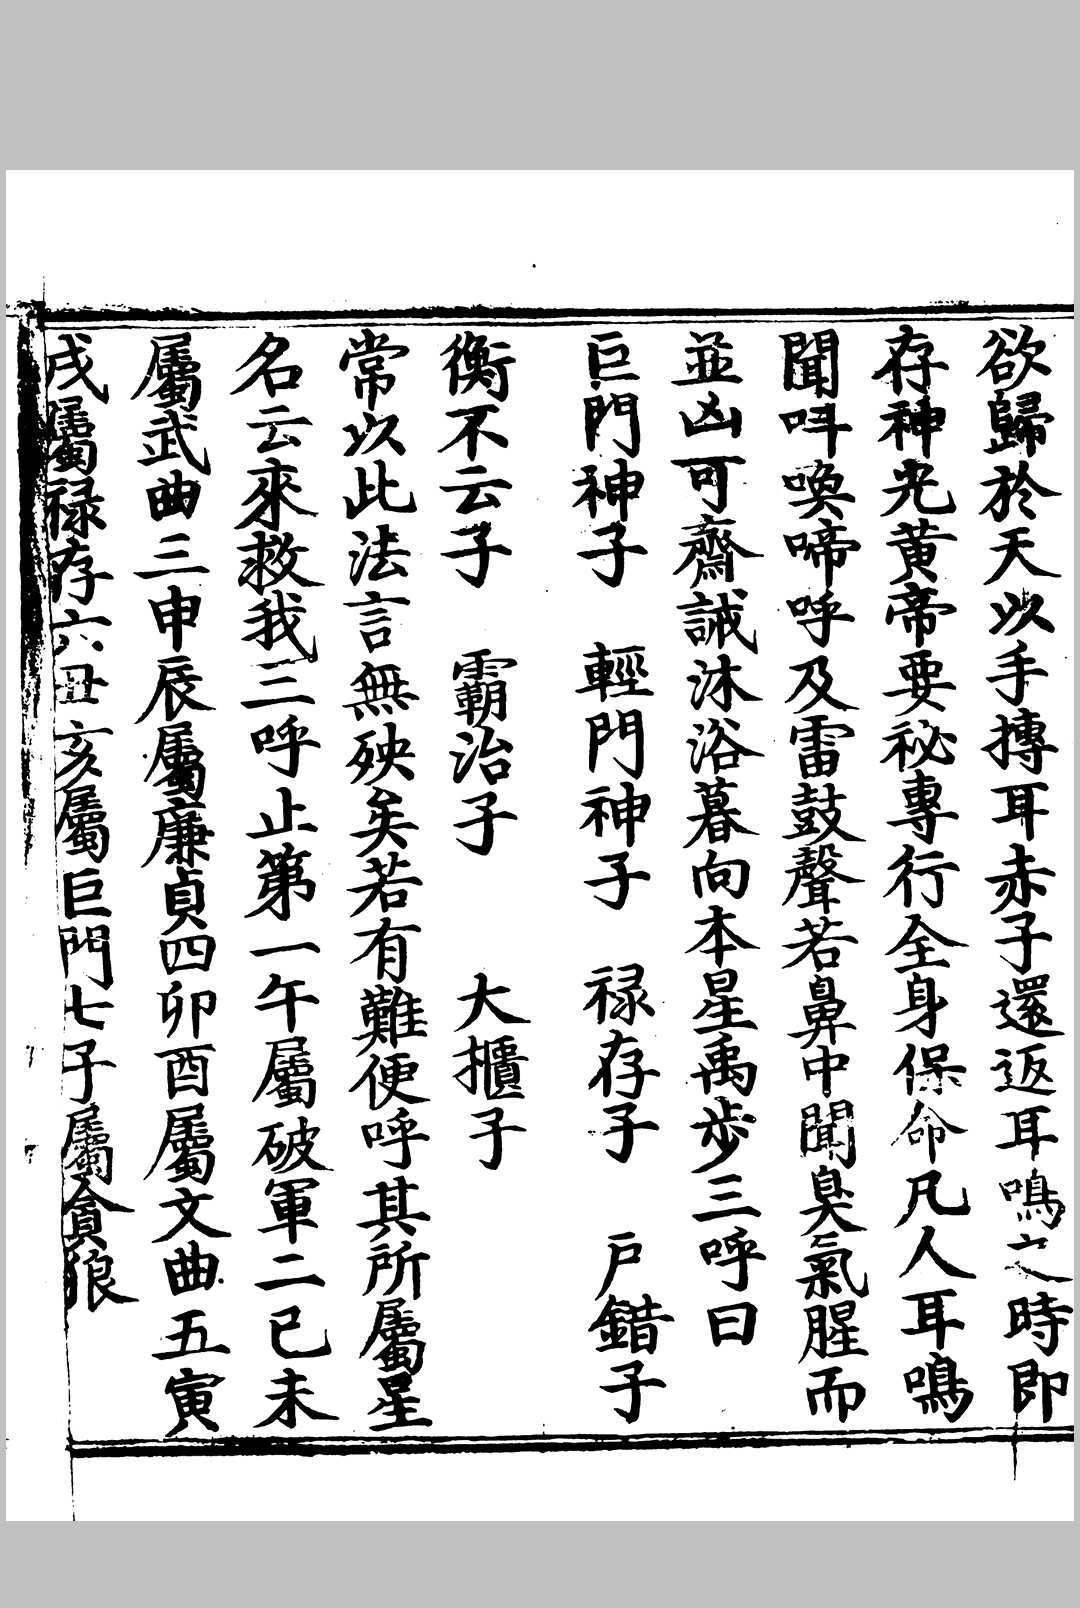 欲歸於天以手摶耳赤子還返耳鳴之時即
存神光黄帝要祕專行全身保命凡人耳鳴
聞呌喚啼呼及雷鼓聲若鼻中聞臭氣腥而
並凶可齋誡沐浴暮向本星禹步三呼曰
巨門神子　輕門神子　禄存子　戶錯子
衡不云子　霸治子　大櫃子
常以此法言無殃矣若有難便呼其所屬星
名云來救我三呼止第一午屬破軍二巳未
屬武曲三申辰屬廉貞四卯酉屬文曲五寅
戌屬禄存六丑亥屬巨門七子屬貪狼